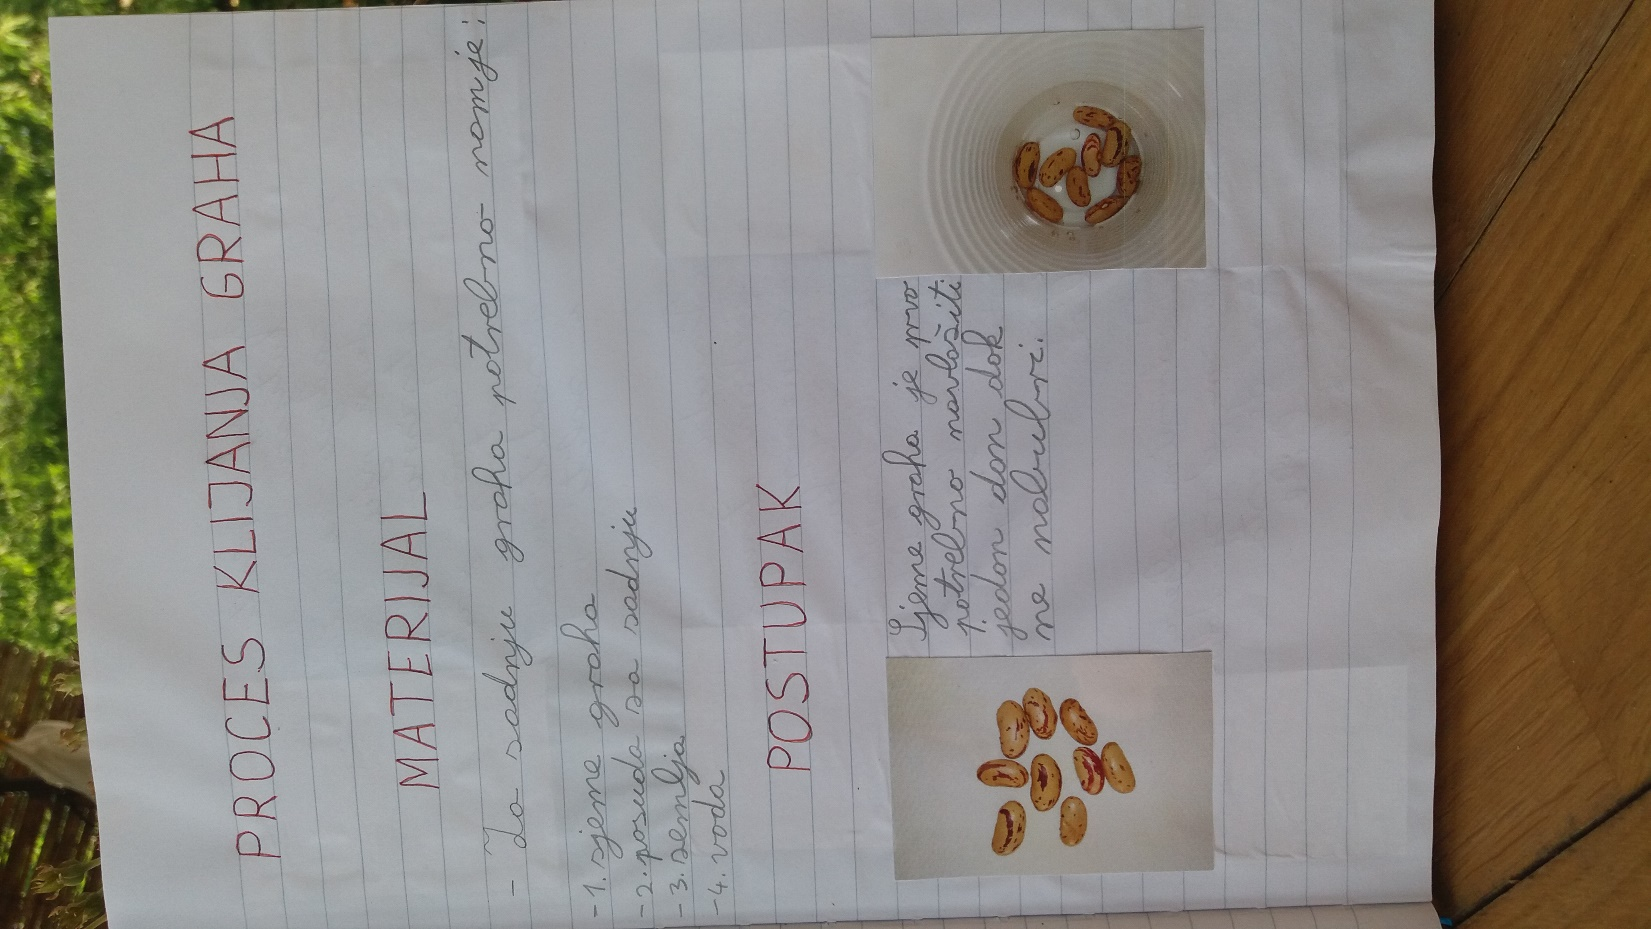 PROCES KLIJANJA GRAHA
MATERIJAL
- Za sadnju graha potrebno nam je:
-1. sjeme graha
-2. posuda za sadnju
-3. zemlja
-4. voda
POSTUPAK
Sjeme graha je prvo
potrebno navlažiti
jedan dan dok
ne nabubri.